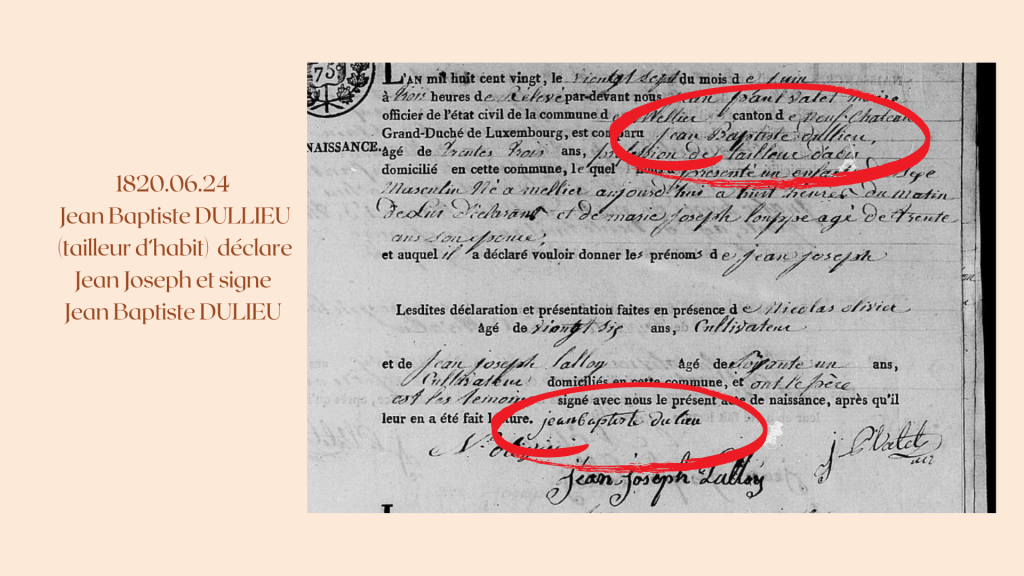 1820.06.24
Jean Baptiste DULLIEU
(tailleur d'habit) déclare
Jean Joseph et signe
Jean Baptiste DULIEU
75
NAISSANCE.
L'AN mil huit cent vingt, le viengt sept du mois de juin
à trois heures de Relevé par-devant nous jean paul valet maire
officier de l'état civil de la commune de Mellier canton de neuf-Chateau
Grand-Duché de Luxembourg, est comparu jean Baptiste dullieu,
âgé de trentes trois ans, profession de tailleur
domicilié en cette commune, lequel nous a présenté un enfant
Masculin Né a mellier aujourd'hui a huit heures du matin
de Lui Déclarant et de marie joseph louppe agé de trente
ans son epouse,
et auquel il a déclaré vouloir donner les prénoms de jean joseph
Lesdites déclaration et présentation faites en présence de Nicolas olivier
âgé de viengt six ans, Cultivateur
et de jean joseph lalloy âgé de soixante un ans,
Cultivateur domiciliés en cette commune, et ont le père
et les temoins signé avec nous le présent acte de naissance, après qu'il
leur en a été fait lecture. jeanbaptiste dulieu
jean joseph Lalloy
J P Valet